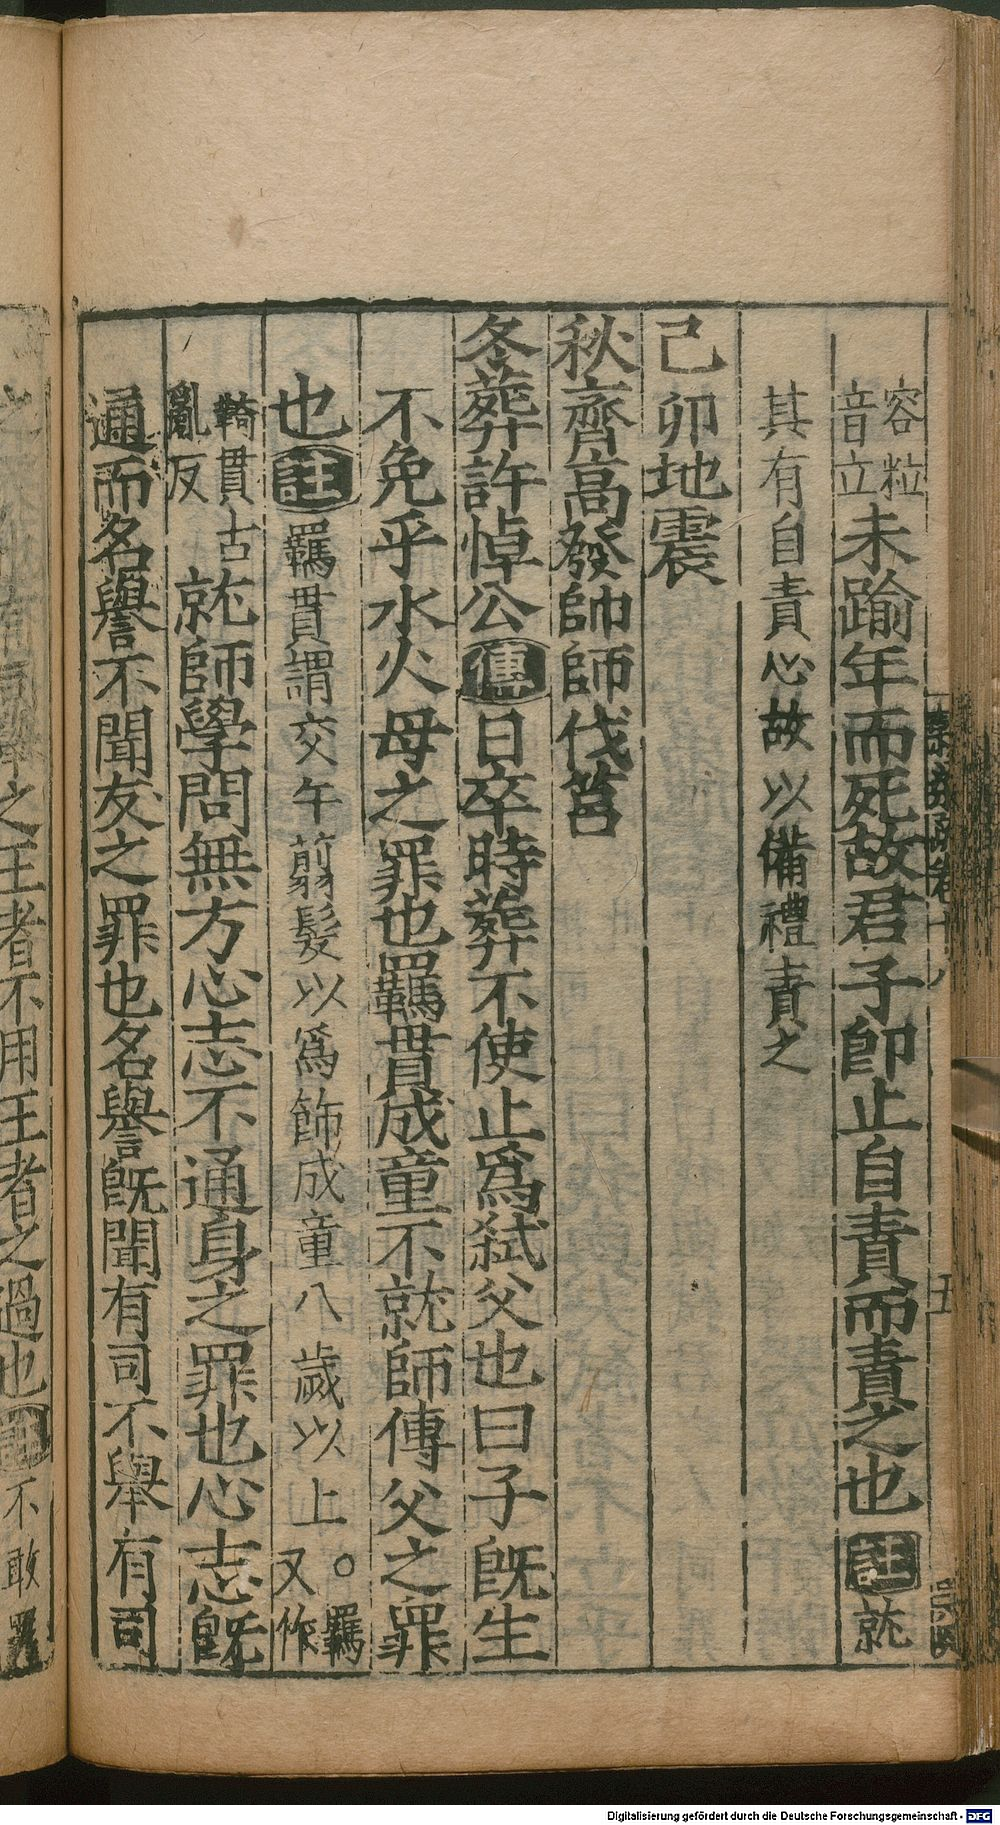 容粒
音立
未踰年而死故君子卽止自責而責之也註就
其有自責心故以備禮責之
己卯地震
秋齊高發帥師伐莒
冬葬許悼公傳日卒時葬不使止爲弑父也曰子旣生
不免乎水火母之罪也羈貫成童不就師傅父之罪
也註羈貫謂交午翦髮以爲飾成童八歲以上○羈
又作
䩭貫古
亂反
就師學問無方心志不通身之罪也心志旣
通而名譽不聞友之罪也名譽旣聞有司不舉有司
五
之王者不用王者之過也註不敢
Digitalisierung gefördert durch die Deutsche Forschungsgemeinschaft - DFG